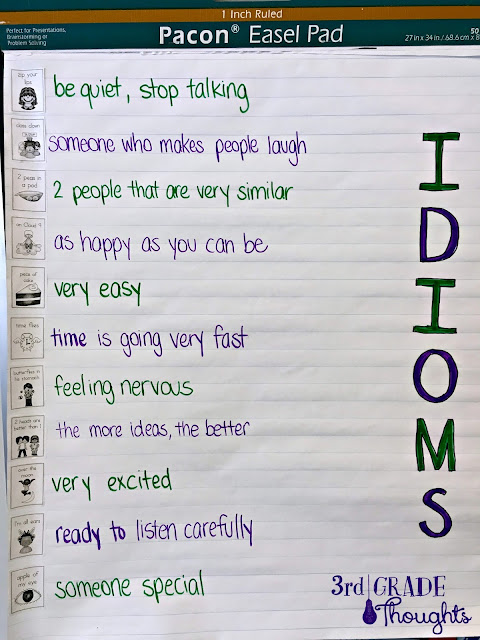 1 Inch Ruled
Perfect for Presentations,
Brainstorming or
Problem Solving
Pacon® Easel Pad
50
27 in x 34 in / 68.6 cm x 8
zip your
lips
be quiet, stop talking
class clown
someone who makes people laugh
2 peas in
a pod
2 people that are very similar
on Cloud 9
as happy as you can be
piece of
cake
very easy
time flies
time is going very fast
butterflies in
his stomach
feeling nervous
2 heads are
better than 1
the more ideas, the better
over the
moon
very excited
I'm all ears
ready to listen carefully
apple of
my eye
someone special
IDIOMS
3rd GRADE
Thoughts